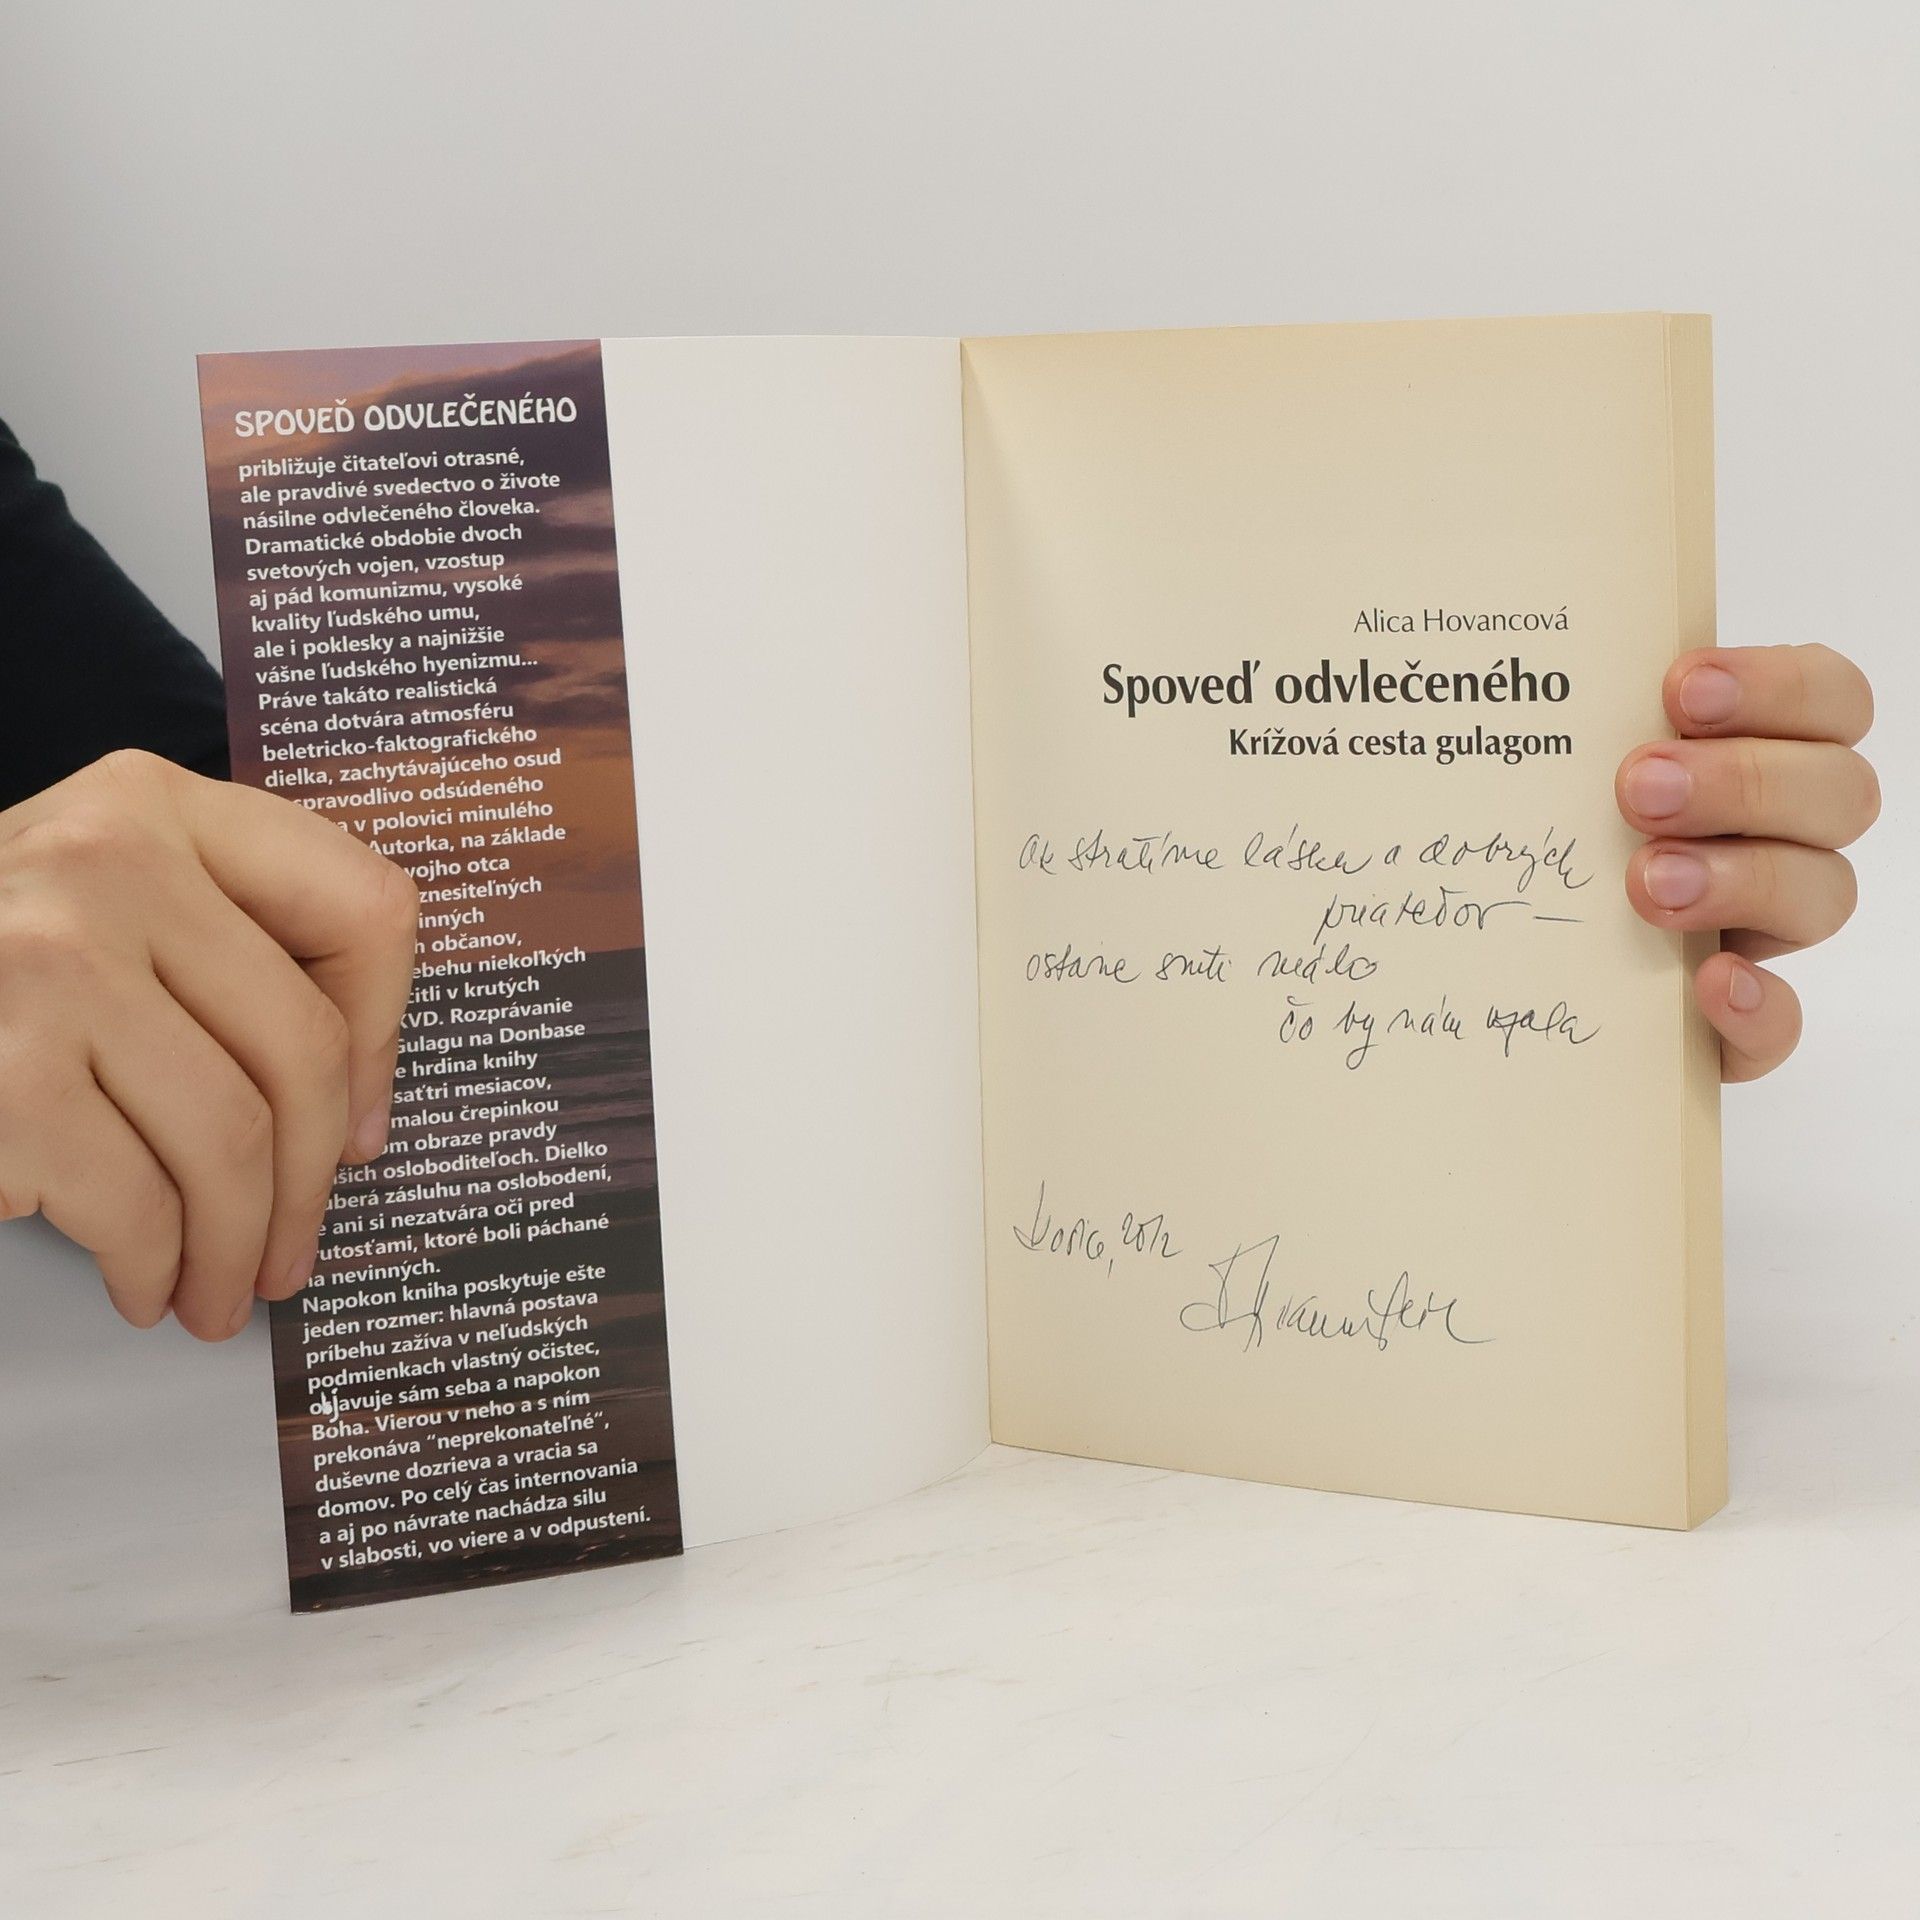 SPOVEĎ ODVLEČENÉHO
približuje čitateľovi otrasné,
ale pravdivé svedectvo o živote
násilne odvlečeného človeka.
Dramatické obdobie dvoch
svetových vojen, vzostup
aj pád komunizmu, vysoké
kvality ľudského umu,
ale i poklesky a najnižšie
vášne ľudského hyenizmu...
Práve takáto realistická
scéna dotvára atmosféru
beletricko-faktografického
dielka, zachytávajúceho osud
spravodlivo odsúdeného
v polovici minulého
Autorka, na základe
vojho otca
znesiteľných
inných
občanov,
ebehu niekoľkých
citli v krutých
KVD. Rozprávanie
Gulagu na Donbase
e hrdina knihy
saťtri mesiacov,
malou črepinkou
om obraze pravdy
šich osloboditeľoch. Dielko
uberá zásluhu na oslobodení,
e ani si nezatvára oči pred
rutosťami, ktoré boli páchané
na nevinných.
Napokon kniha poskytuje ešte
jeden rozmer: hlavná postava
príbehu zažíva v neľudských
podmienkach vlastný očistec,
objavuje sám seba a napokon
Boha. Vierou v neho a s ním
prekonáva “neprekonateľné“,
duševne dozrieva a vracia sa
domov. Po celý čas internovania
a aj po návrate nachádza silu
v slabosti, vo viere a v odpustení.
Alica Hovancová
Spoveď odvlečeného
Krížová cesta gulagom
Ak stratíme lásku a dobrých
priateľov —
ostane smrti málo
čo by nám vzala
2012